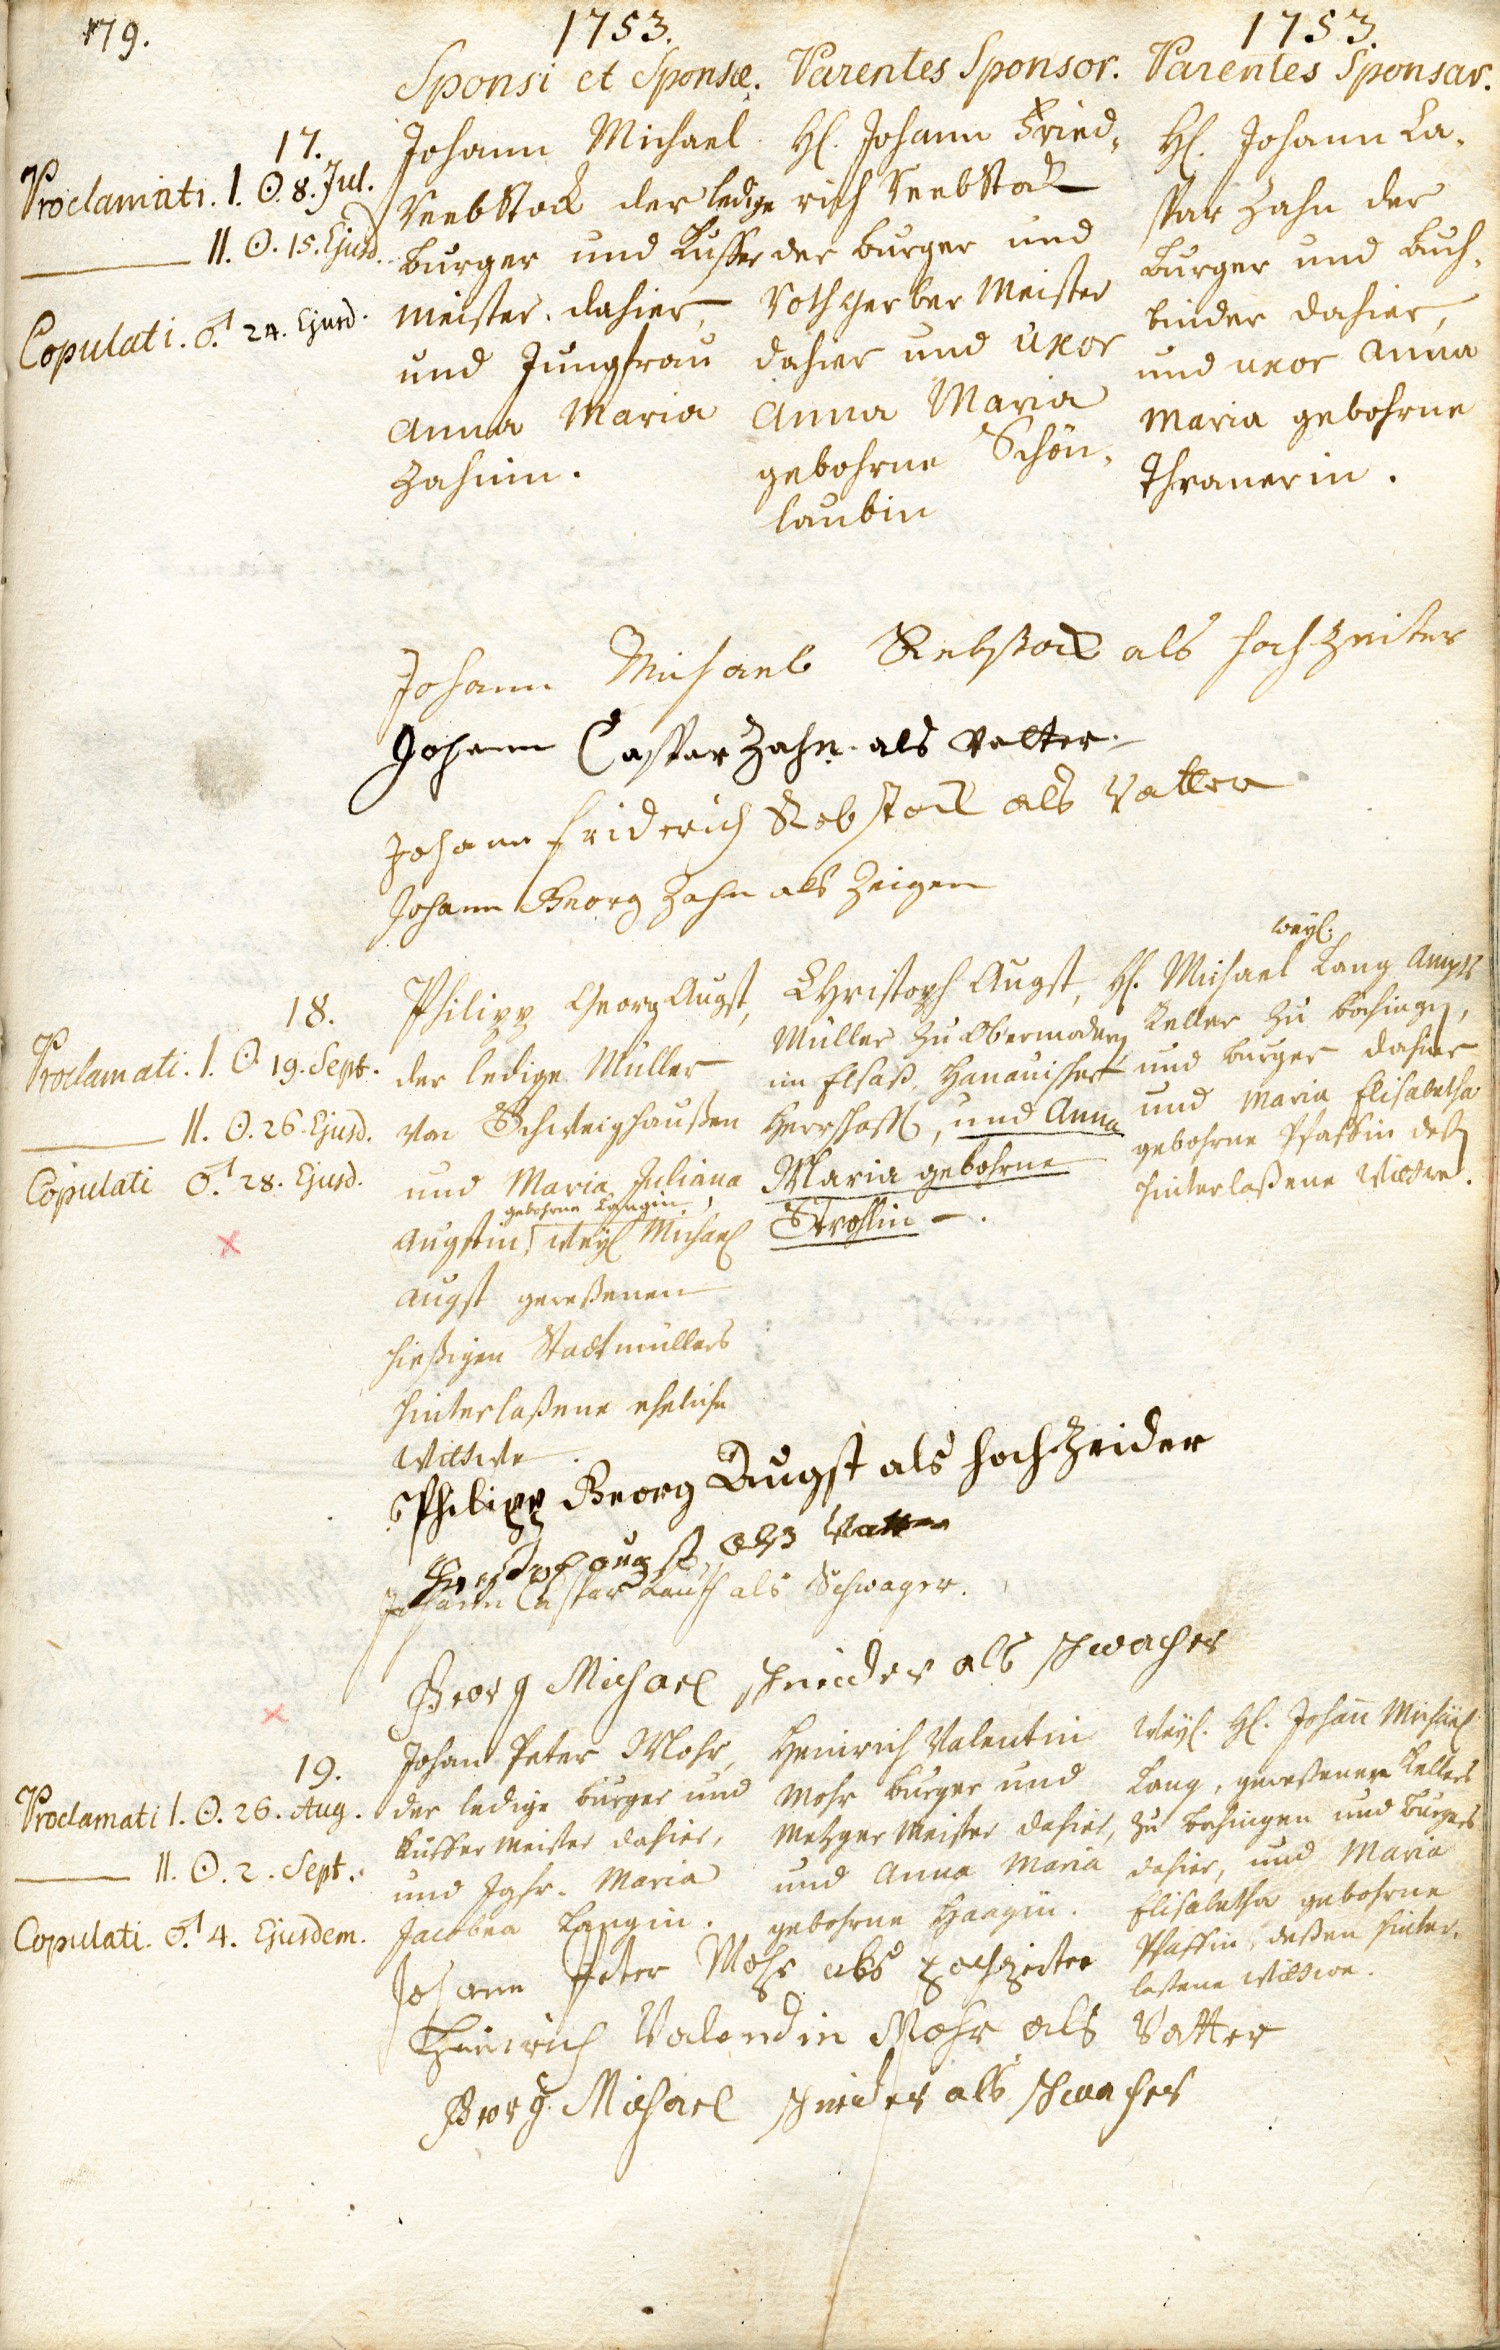 179.
1753.
1753.
Sponsi et Sponsæ.
Parentes Sponsor.
Parentes Sponsar.
17.
Proclamati. I. ☉. 8. Jul.
II. ☉. 15. Ejusd.
Copulati. ♂. 24. Ejusd.
Johann Michael
Reebstock der ledige
burger und Kuffer
meister dahier,
und Jungfrau
Anna Maria
Zahnin.
H. Johann Fried-
rich Reebstock
der burger und
Rothgerber Meister
dahier und uxor
Anna Maria
gebohrne Schön-
laubin
H. Johann Ca-
spar Zahn der
burger und buch-
binder dahier,
und uxor Anna
Maria gebohrne
Thranerin.
Johann Michael Rebstock als Hochzeiter
Johann Caspar Zahn als Vatter
Johann Friderich Rebstock als Vatter
Johann Georg Zahn als Zeigen
18.
Proclamati. I. ☉ 19. Sept.
II. ☉. 26. Ejusd.
Copulati ♂. 28. Ejusd.
Philipp Georg Augst,
der ledige Müller
von Schweighaußen
und Maria Juliana
gebohrne Langin,
Augstin, weyl Michael
Augst geweßenen
hießigen Stadtmüllers
hinterlaßene eheliche
Wittwe
Christoph Augst,
Müller zu Obermodern
im Elsaß, Hanauischer
Herrschafft, und Anna
Maria gebohrne
Strohlin.
weyl.
H. Michael Lang Ampts
Keller zu Böchingen,
und burger dahier
und Maria Elisabetha
gebohrne Pfaffin deß
hinterlaßene Wittwe.
Philipp Georg Augst als Hochzeider
Christoph augst als Vatter
Johann Caspar Lauth als Schwager.
Georg Michael schneider als schwacher
19.
Proclamati I. ☉. 26. Aug.
II. ☉. 2. Sept.
Copulati. ♂. 4. Ejusdem.
Johan Peter Mohr,
der ledige burger und
Kuffer Meister dahier,
und Jgfr. Maria
Jacobea Langin.
Heinrich Valentin
Mohr burger und
Metzger Meister dahier,
und Anna Maria
gebohrne Haagin.
Weyl. H. Johann Michael
Lang, geweßenen Kellers
zu Bechingen und burgers
dahier, und Maria
Elisabetha gebohrne
Pfaffin, deßen hinter-
laßene Wittwe.
Johann Peter Mohr als Hochzeiter
Heinrich Valendin Mohr als Vatter
Georg Michael schneider als schwacher